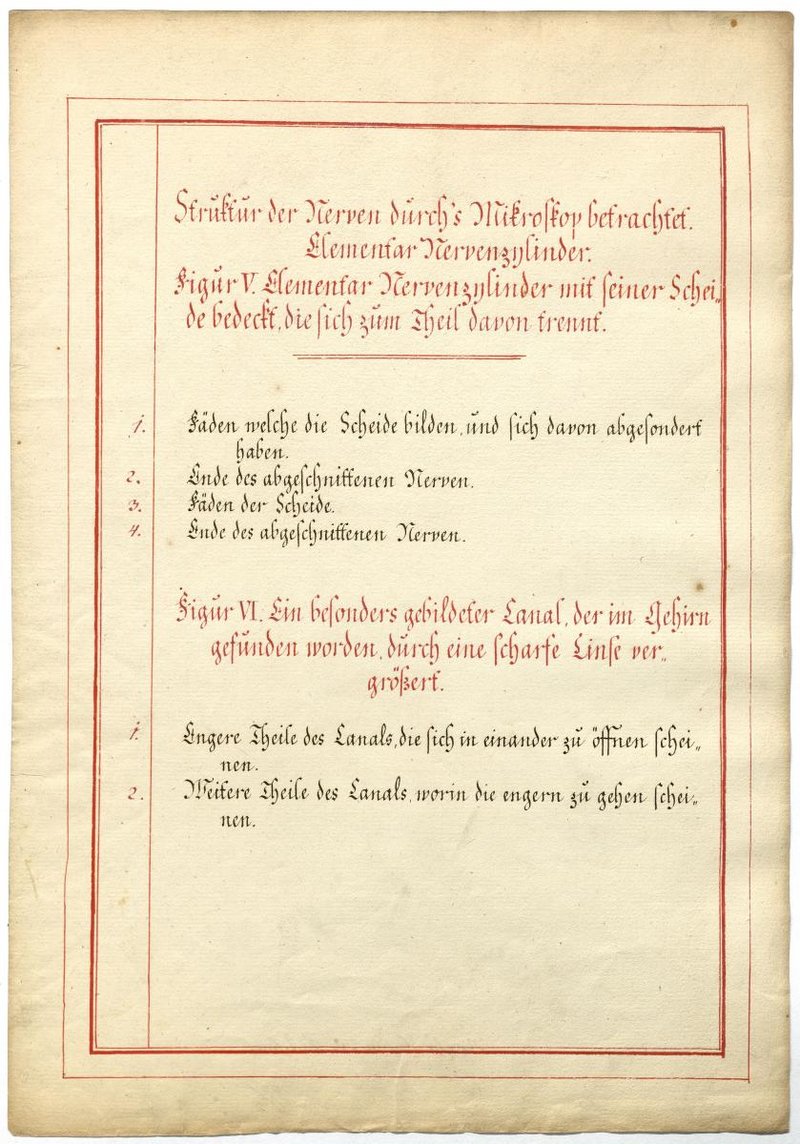 Struktur der Nerven durch's Mikroskop betrachtet.
Elementar Nervenzylinder.
Figur V. Elementar Nervenzylinder mit seiner Schei„
de bedeckt, die sich zum Theil davon trennt.
1. Fäden welche die Scheide bilden, und sich davon abgesondert
haben.
2. Ende des abgeschnittenen Nerven.
3. Fäden der Scheide.
4. Ende des abgeschnittenen Nerven.
Figur VI. Ein besonders gebildeter Canal, der im Gehirn
gefunden worden, durch eine scharfe Linse ver„
größert.
1. Engere Theile des Canals, die sich in einander zu öffnen schei„
nen.
2. Weitere Theile des Canals, worin die engern zu gehen schei„
nen.